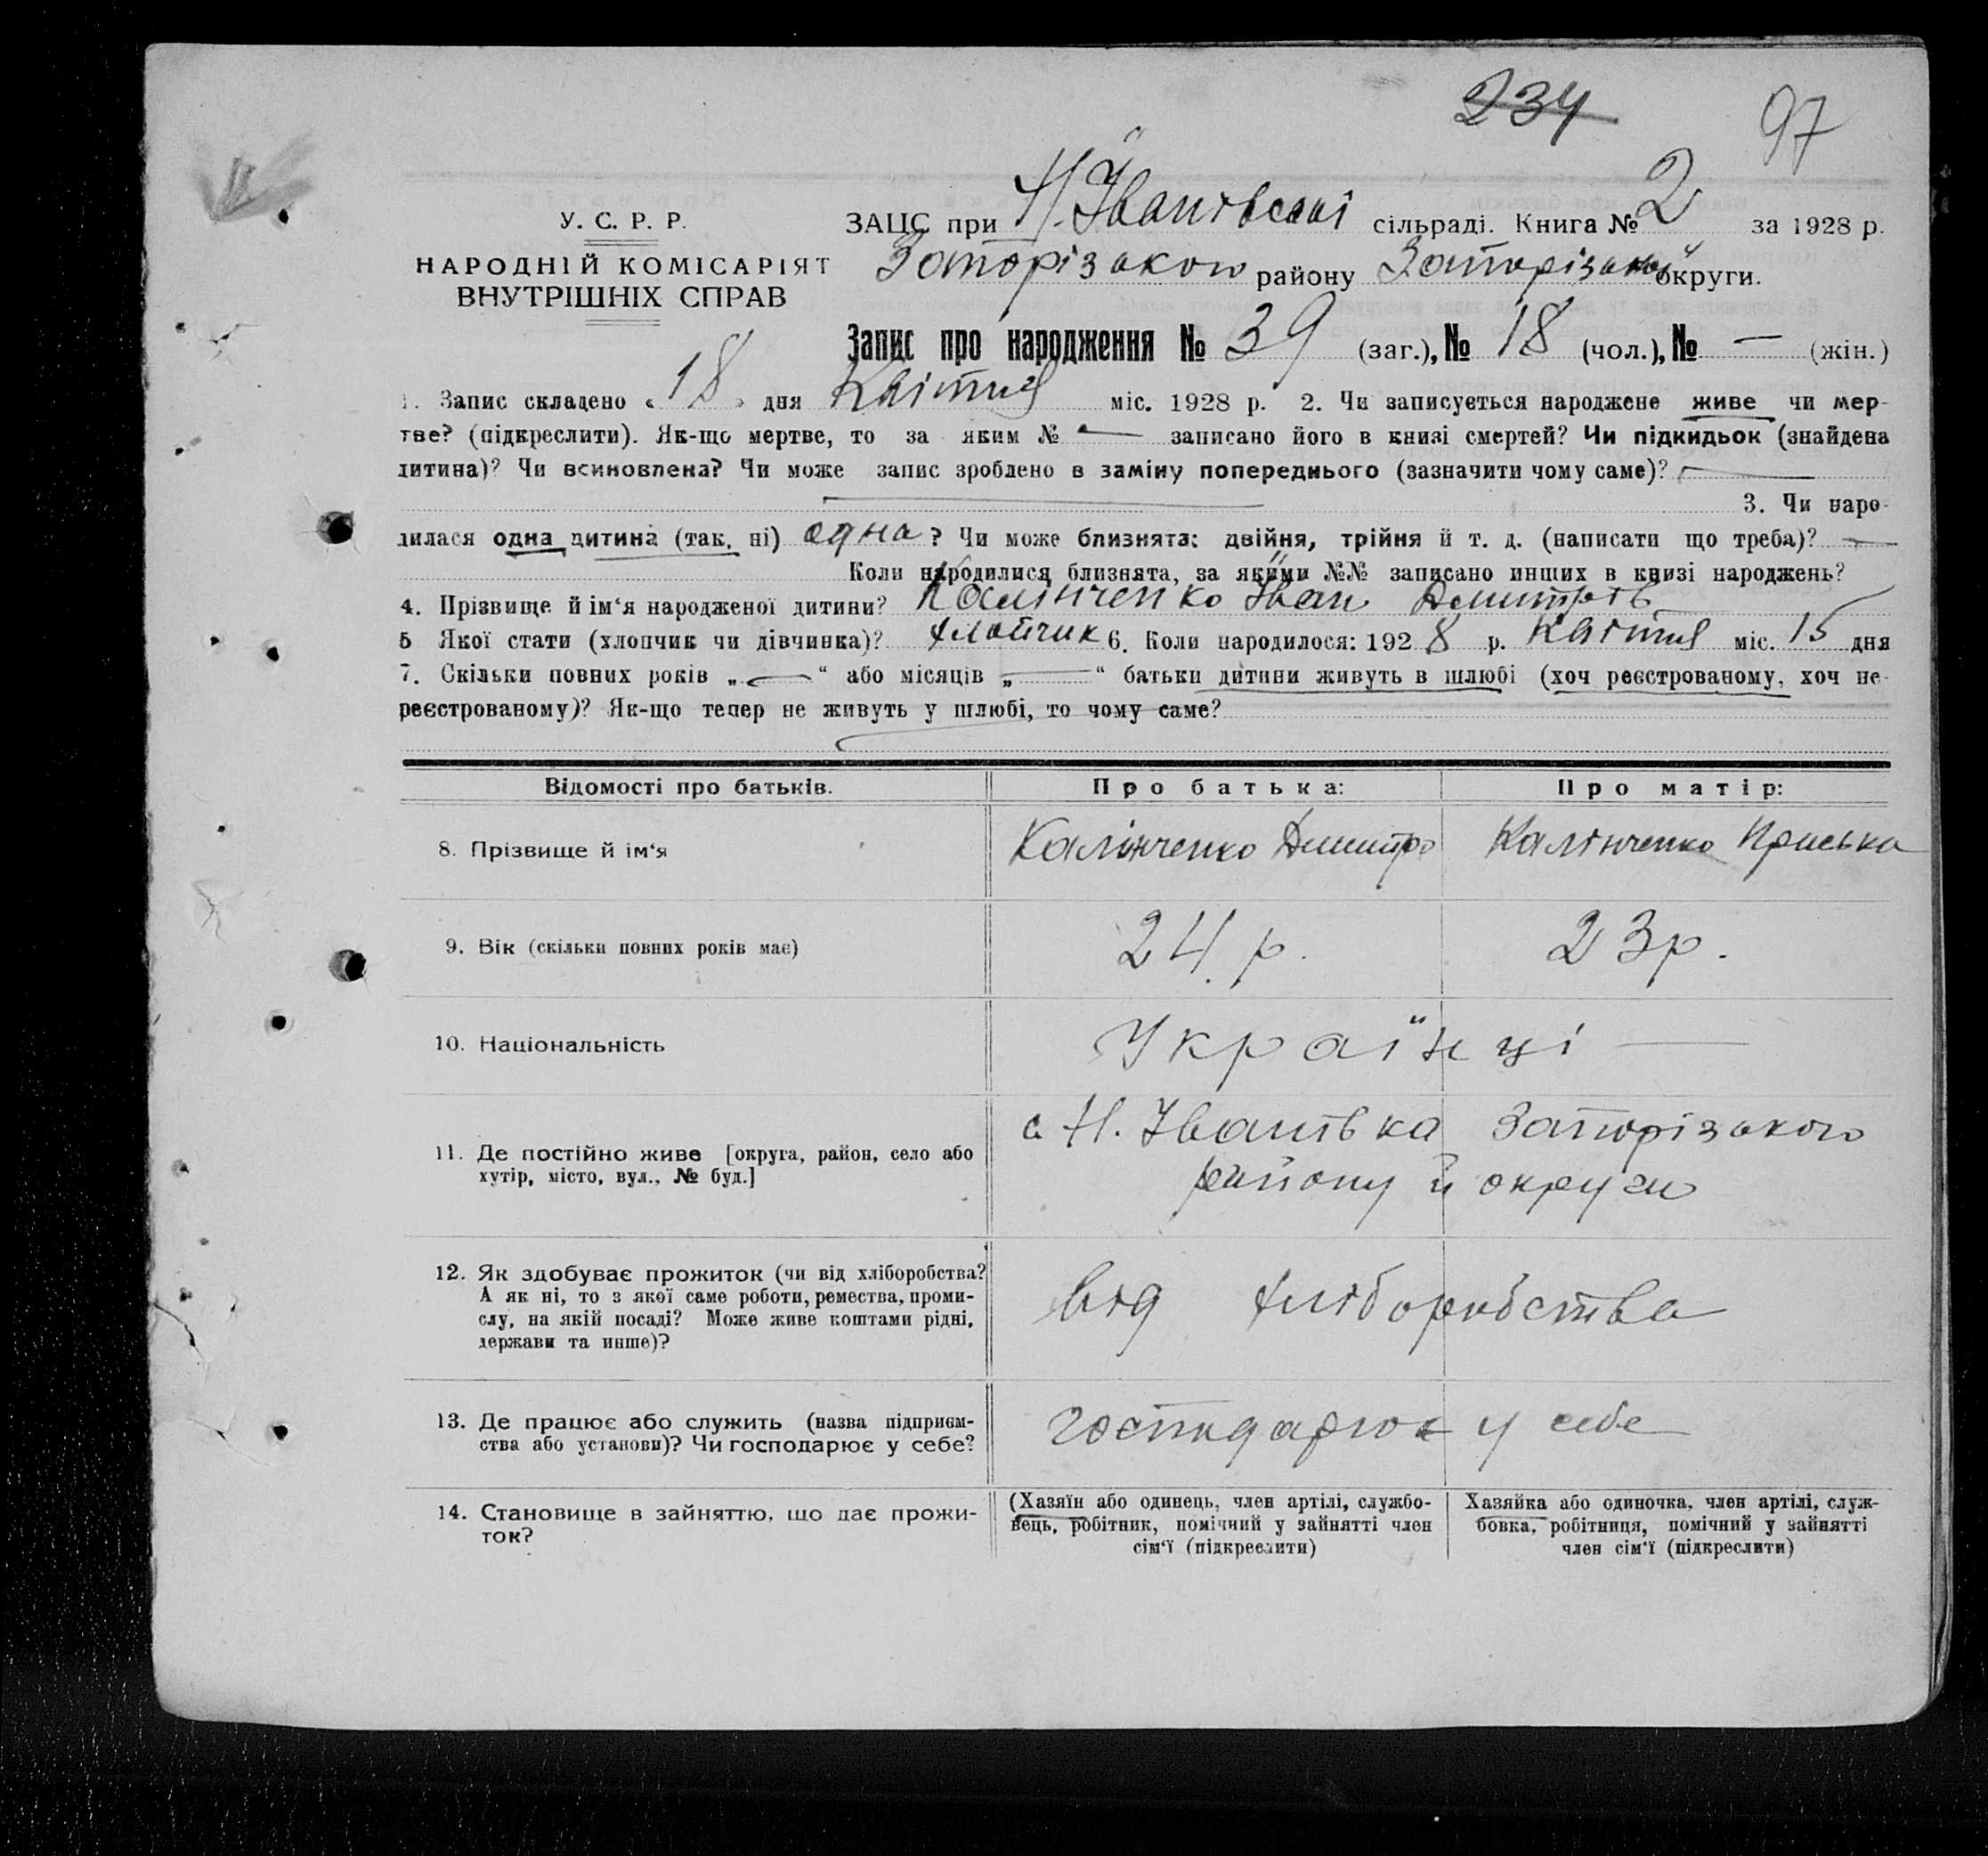 234 97
У. С. Р. Р.
НАРОДНІЙ КОМІСАРІЯТ
ВНУТРІШНІХ СПРАВ
ЗАЦС при Н. Іванівській сільраді. Книга № 2 за 1928 р.
Запорізького району Запорізької округи.
Запис про народження № 39 (заг.), № 18 (чол.), № — (жін.)
1. Запис складено « 18 » дня Квітня міс. 1928 р. 2. Чи записується народжене живе чи мер-
тве? (підкреслити). Як-що мертве, то за яким № — записано його в книзі смертей? Чи підкидьок (знайдена
дитина)? Чи всиновлена? Чи може запис зроблено в заміну попереднього (зазначити чому саме)? —
3. Чи наро-
дилася одна дитина (так, ні) одна ? Чи може близнята: двійня, трійня й т. д. (написати що треба)? —
Коли народилися близнята, за якими №№ записано инших в книзі народжень?
4. Прізвище й ім‘я народженої дитини? Калінченко Іван Дмитрів
5 Якої стати (хлопчик чи дівчинка)? хлопчик 6. Коли народилося: 1928 р. Квітня міс. 15 дня
7. Скільки повних років „ — “ або місяців „ — “ батьки дитини живуть в шлюбі (хоч реєстрованому, хоч не-
реєстрованому)? Як-що тепер не живуть у шлюбі, то чому саме?
Відомості про батьків. Про батька: Про матір:
8. Прізвище й ім‘я Калінченко Дмитро Калінченко Приська
9. Вік (скільки повних років має) 24 р. 23 р.
10. Національність Українці —
11. Де постійно живе [округа, район, село або
хутір, місто, вул., № буд.]
с. Н. Іванівка Запорізького
району й округи
12. Як здобуває прожиток (чи від хліборобства?
А як ні, то з якої саме роботи, ремества, проми-
слу, на якій посаді? Може живе коштами рідні,
держави та инше)?
від хліборобства
13. Де працює або служить (назва підприєм-
ства або установи)? Чи господарює у себе?
господарює у себе
14. Становище в зайняттю, що дає прожи-
ток?
(Хазяїн або одинець, член артілі, службо-
вець, робітник, помічний у зайнятті член
сім‘ї (підкреслити)
Хазяйка або одиночка, член артілі, служ-
бовка, робітниця, помічний у зайнятті
член сім‘ї (підкреслити)